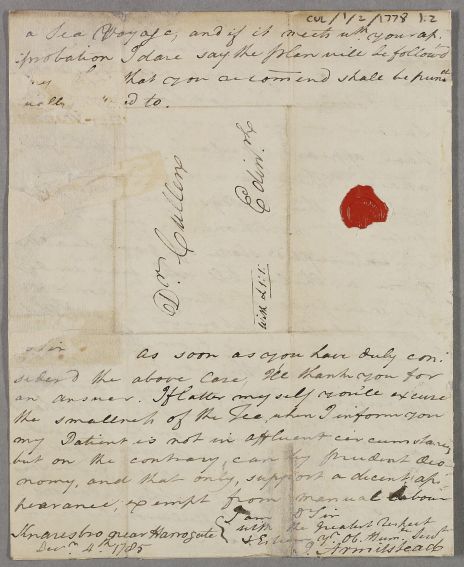 CUL/1/2/1778 1:2
a Sea Voyage, and if it meets wth your ap:
:probation I dare say the plan will be follow'd
that you recommend shall be punct
ually to.
Dr. Cullen
Edinr.
with £1:1:
Sir As soon as you have duly con:
sider'd the above Case, I'll thank you for
an answer. I flatter myself you'll excuse
the smallness of the Fee, when I inform you
my Patient is not in affluent circumstances
but on the contrary, can by prudent Oeco
nomy, and that only, support a decent ap:
pearance, exempt from manual labour
I am Dr Sir
with the greatest respect
& Esteem yr. Ob. Hum. Servt
Knaresbro near Harrogate
Decm. 4th 1785
Armitstead